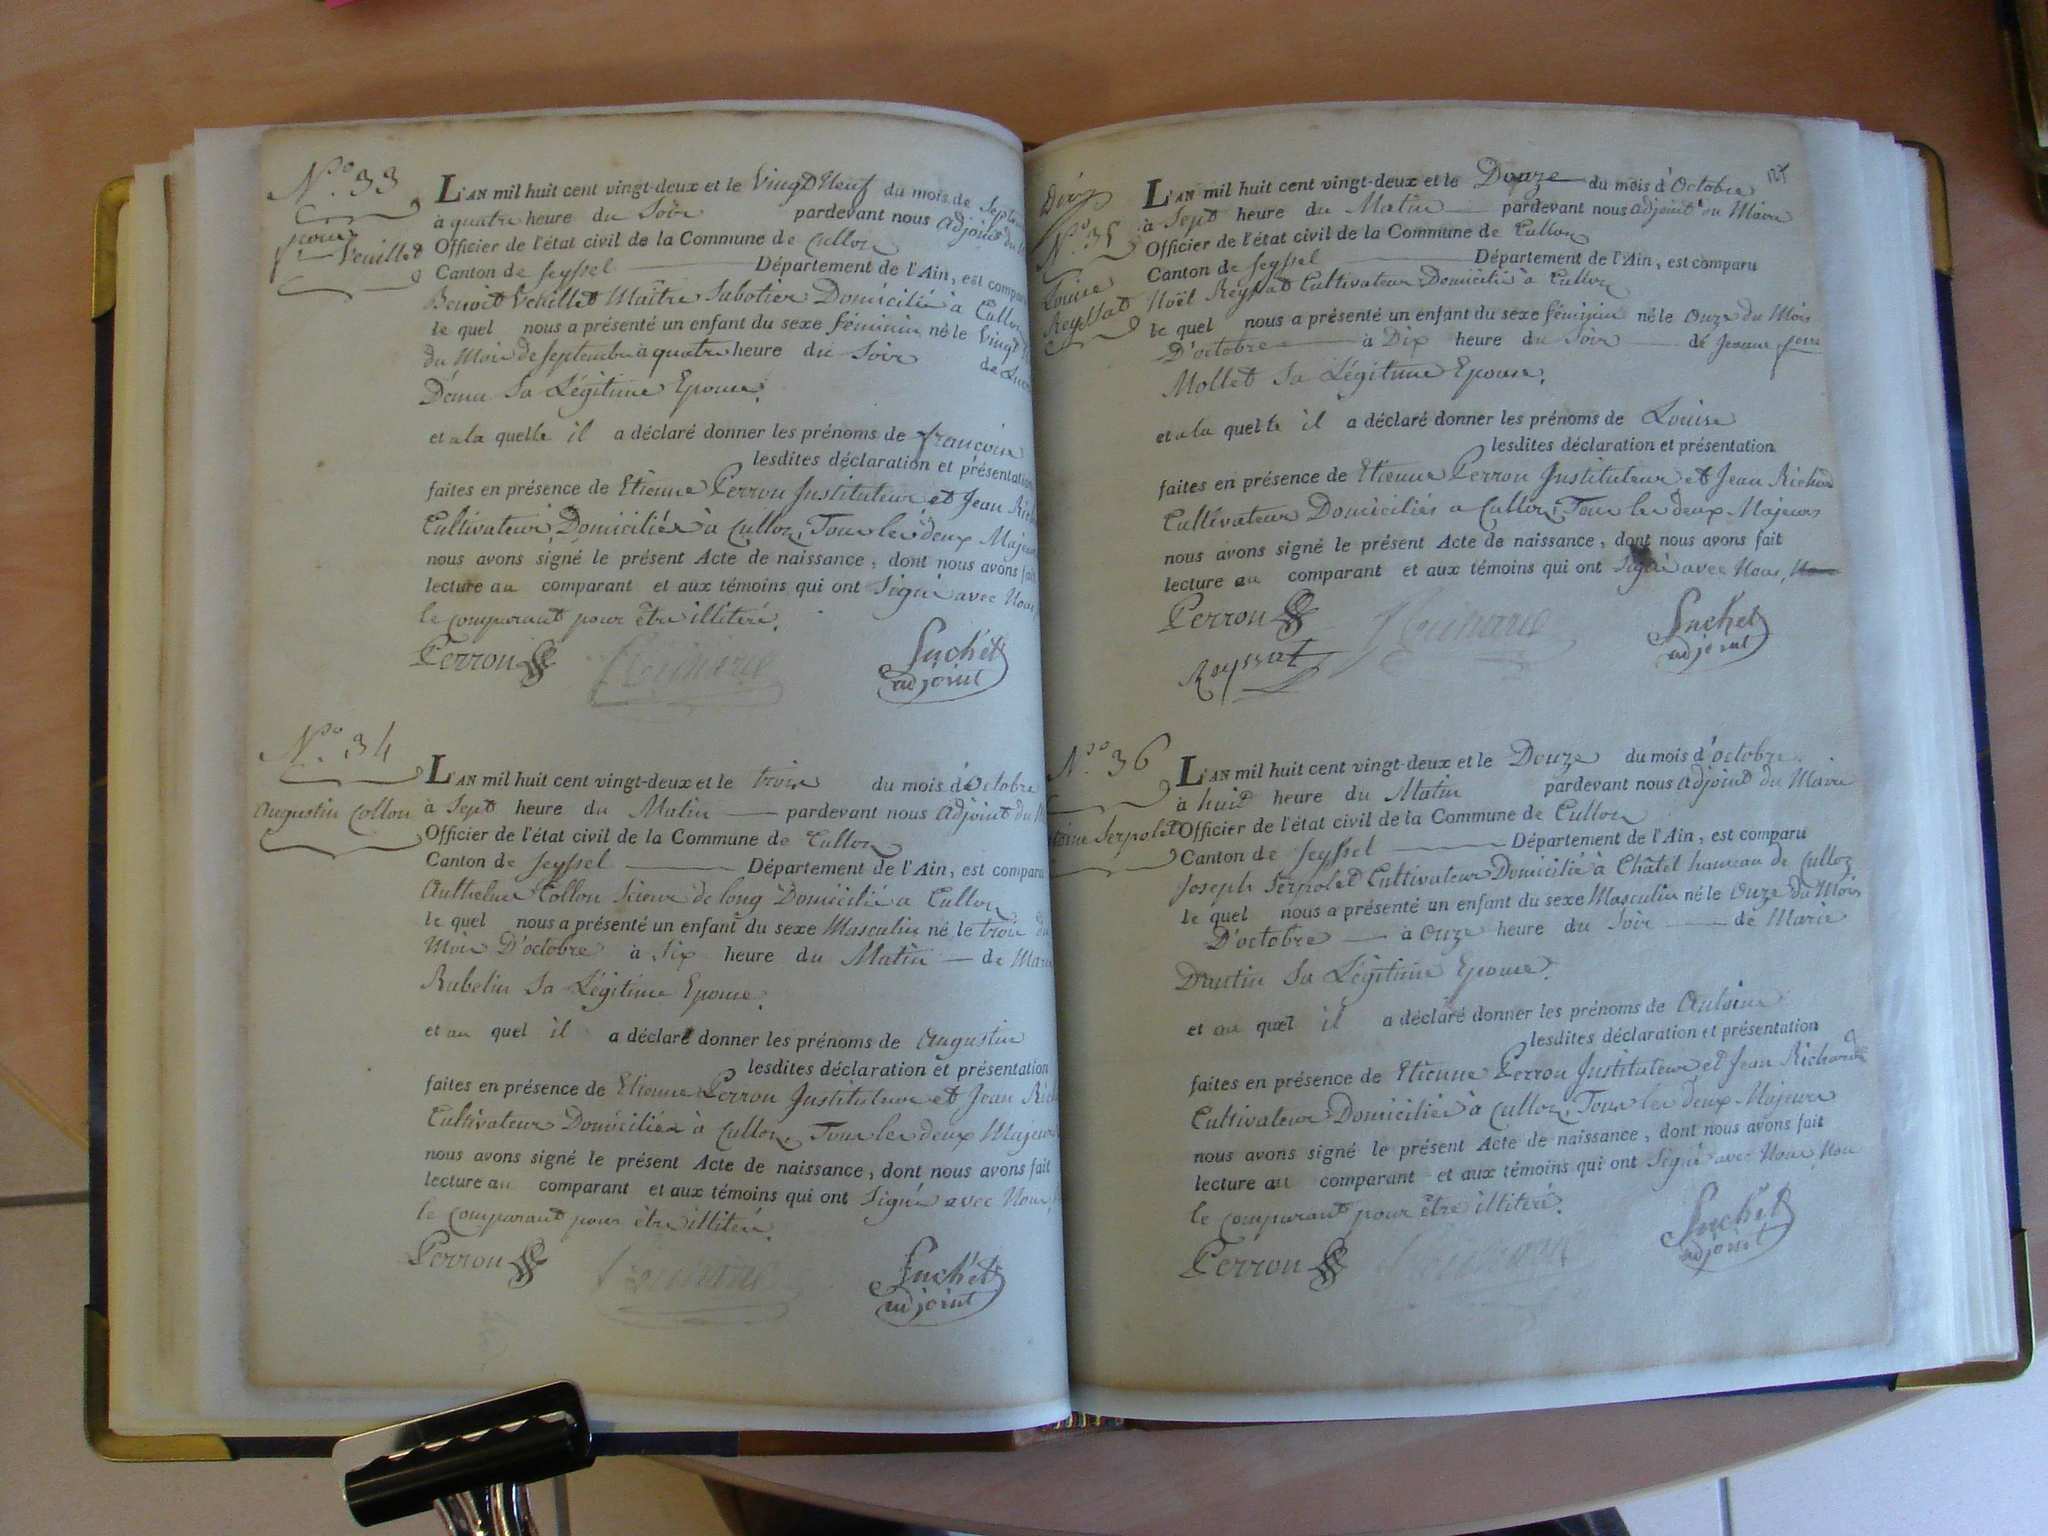 N.o 33
Veuillet
L'AN mil huit cent vingt-deux et le Vingt Neuf du mois de
à quatre heure du Soir pardevant nous Adjoint du
Officier de l'état civil de la Commune de Culloz
Canton de Seyssel Département de l'Ain, est comparu
Benoit Veuillet Maître Sabotier Domicilié à Culloz
le quel nous a présenté un enfant du sexe féminin né le Vingt
du Mois de Septembre à quatre heure du Soir de
Sa Légitime Epouse.
et a la quelle il a déclaré donner les prénoms de françoise
lesdites déclaration et présentation
faites en présence de Etienne Perron Instituteur et Jean
Cultivateur Domiciliés à Culloz, Tous les deux Majeurs
nous avons signé le présent Acte de naissance, dont nous avons fait
lecture au comparant et aux témoins qui ont Signé avec Nous,
le comparant pour être illitéré.
Perron Richard Suchet
adjoint
N.o 34
Augustin Collon
L'AN mil huit cent vingt-deux et le trois du mois d'Octobre
à Sept heure du Matin pardevant nous Adjoint du
Officier de l'état civil de la Commune de Culloz
Canton de Seyssel Département de l'Ain, est comparu
Anthelme Collon Scieur de long Domicilié à Culloz
le quel nous a présenté un enfant du sexe Masculin né le trois du
Mois D'octobre à Six heure du Matin de Marie
Rubelin Sa Légitime Epouse.
et au quel il a déclaré donner les prénoms de Augustin
lesdites déclaration et présentation
faites en présence de Etienne Perron Instituteur et Jean
Cultivateur Domiciliés à Culloz, Tous les deux Majeurs
nous avons signé le présent Acte de naissance, dont nous avons fait
lecture au comparant et aux témoins qui ont Signé avec Nous,
le comparant pour être illitéré.
Perron Richard Suchet
adjoint
N.o 35
Louise
Reyssat
L'AN mil huit cent vingt-deux et le Douze du mois d'Octobre
à Sept heure du Matin pardevant nous adjoint du Maire
Officier de l'état civil de la Commune de Culloz
Canton de Seyssel Département de l'Ain, est comparu
Noël Reyssat Cultivateur Domicilié à Culloz
le quel nous a présenté un enfant du sexe féminin né le Onze du Mois
D'octobre à Dix heure du Soir de Jeanne
Mollet Sa Légitime Epouse.
et a la quelle il a déclaré donner les prénoms de Louise
lesdites déclaration et présentation
faites en présence de Etienne Perron Instituteur et Jean Richard
Cultivateur Domiciliés a Culloz, Tous les deux Majeurs
nous avons signé le présent Acte de naissance, dont nous avons fait
lecture au comparant et aux témoins qui ont Signé avec Nous,
Perron Richard Suchet
adjoint
Reyssat
N.o 36
Serpolet
L'AN mil huit cent vingt-deux et le Douze du mois d'octobre
à huit heure du Matin pardevant nous Adjoint du Maire
Officier de l'état civil de la Commune de Culloz
Canton de Seyssel Département de l'Ain, est comparu
Joseph Serpolet Cultivateur Domicilié à Châtel hameau de Culloz
le quel nous a présenté un enfant du sexe Masculin né le Onze du Mois
D'octobre à Onze heure du Soir de Marie
Dantin Sa Légitime Epouse.
et au quel il a déclaré donner les prénoms de Antoine
lesdites déclaration et présentation
faites en présence de Etienne Perron Instituteur et Jean Richard
Cultivateur Domiciliés à Culloz, Tous les deux Majeurs
nous avons signé le présent Acte de naissance, dont nous avons fait
lecture au comparant et aux témoins qui ont Signé avec Nous, Non
le comparant pour être illitéré.
Perron Richard Suchet
adjoint